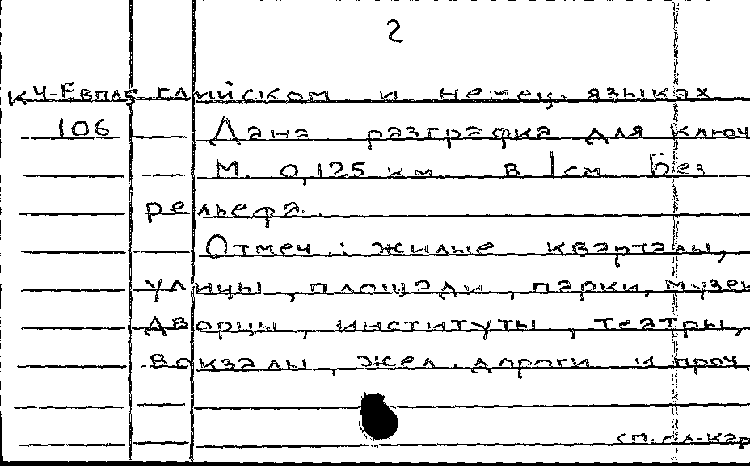 2
КЧ-Евпл5 глийском и немец. языках
106 Дана разграфка для ключ
М. 0,125 км в 1см Без
рельефа.
Отмеч.: жилые кварталы,
улицы, площади, парки, музеи
дворцы, институты, театры,
вокзалы, жел. дороги и проч.